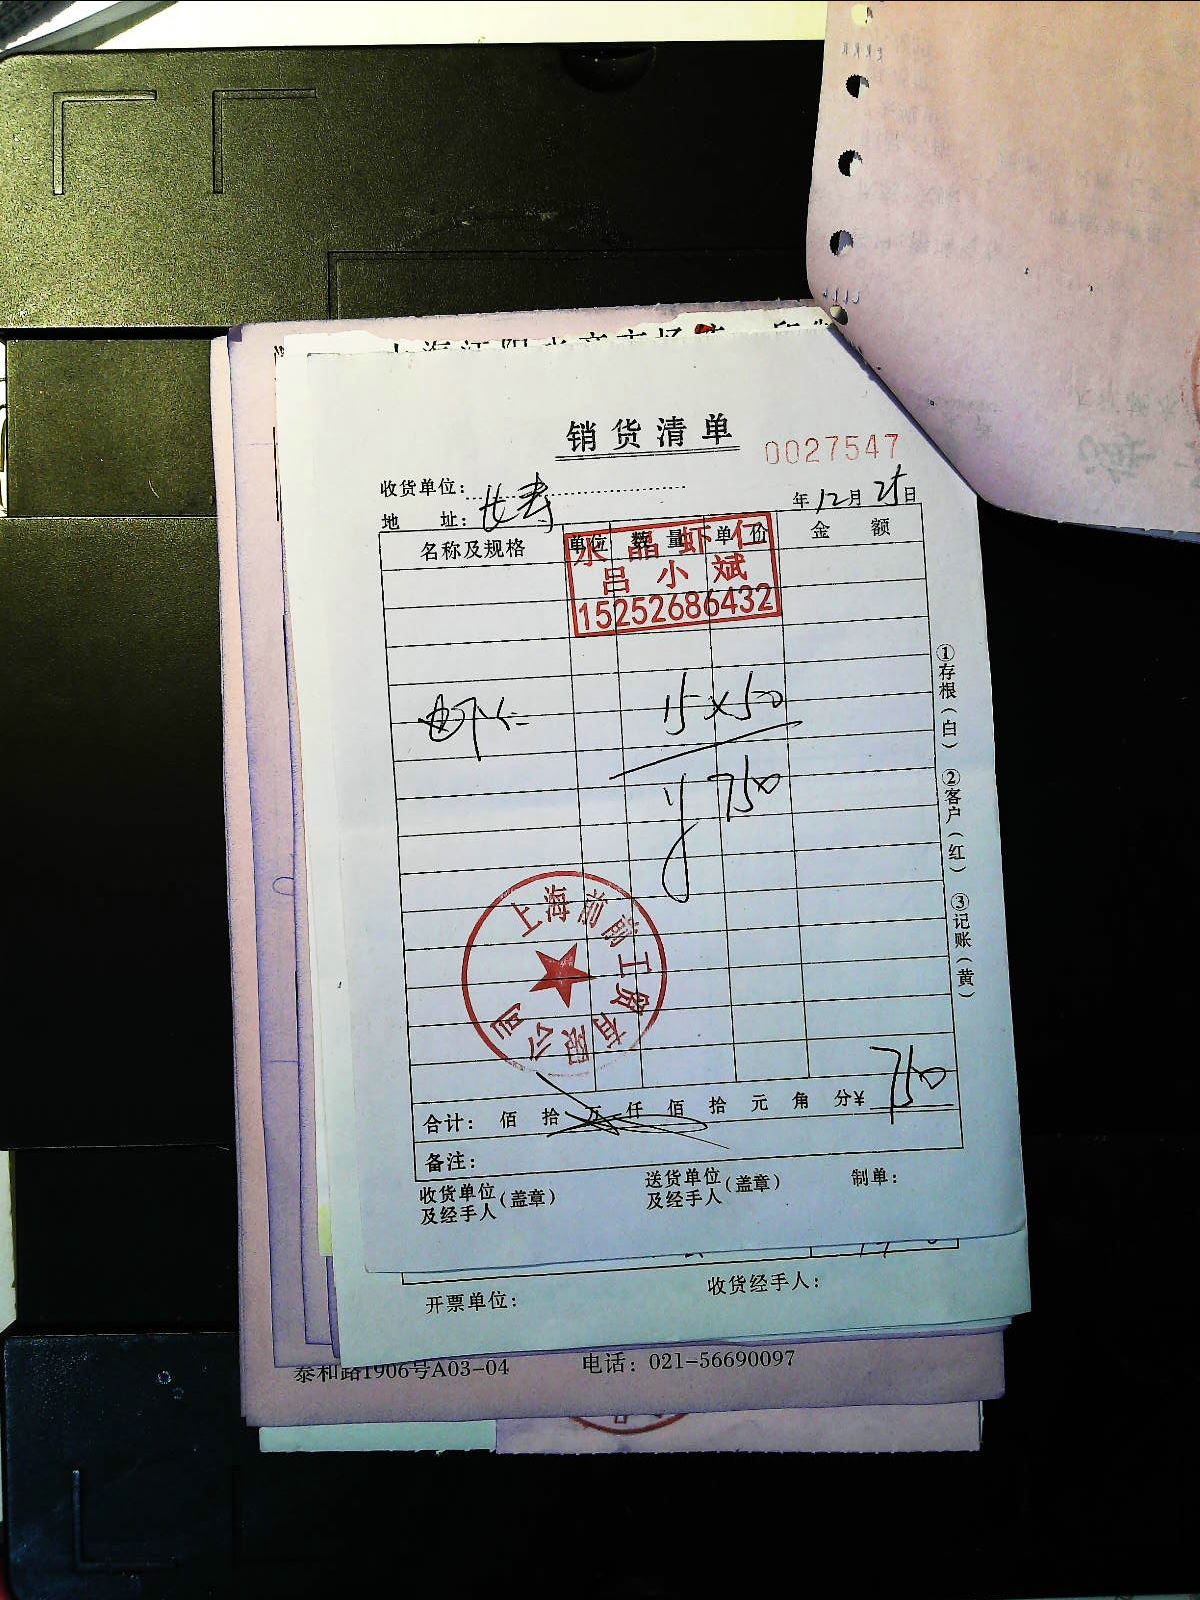 销货清单
0027547
收货单位：
年12月25日
地 址：长寿
名称及规格 单位 数量 单价 金额
水晶虾仁
吕小斌
15252686432
虾仁 15×50
¥750
上海前前工贸有限公司
合计： 佰 拾 万 仟 佰 拾 元 角 分¥ 750
备注：
收货单位及经手人（盖章）
送货单位及经手人（盖章）
制单：
①存根（白） ②客户（红） ③记账（黄）
开票单位：
收货经手人：
泰和路1906号A03-04 电话：021-56690097